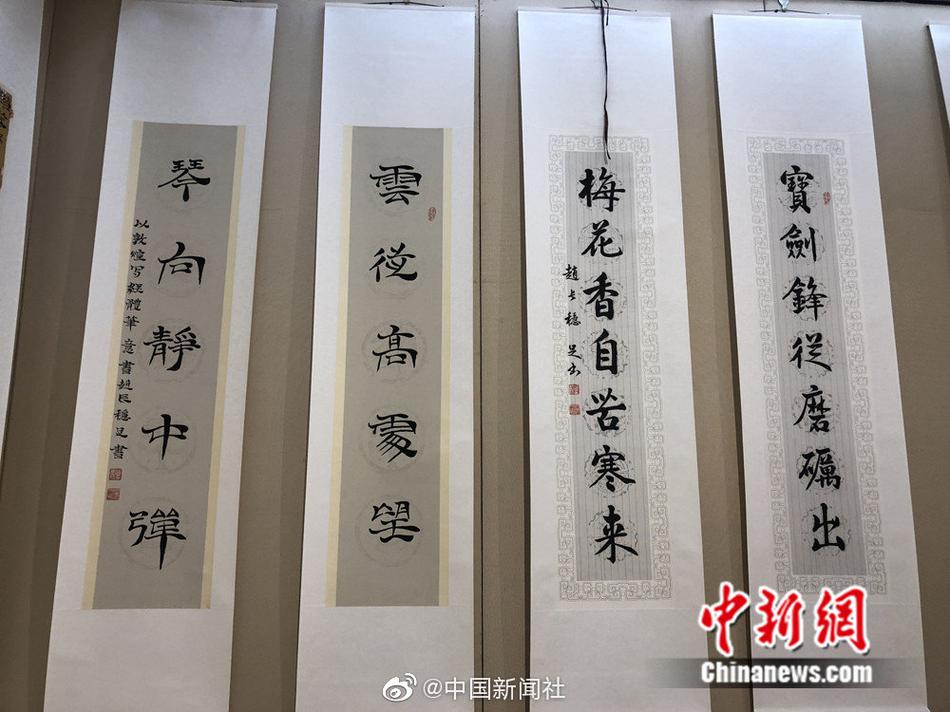 寶劍鋒從磨礪出
梅花香自苦寒来
趙长穩 足书
雲從高處望
琴向靜中彈
以敦煌写經體筆意書趙长穩足書
中新網
Chinanews.com
@中国新闻社